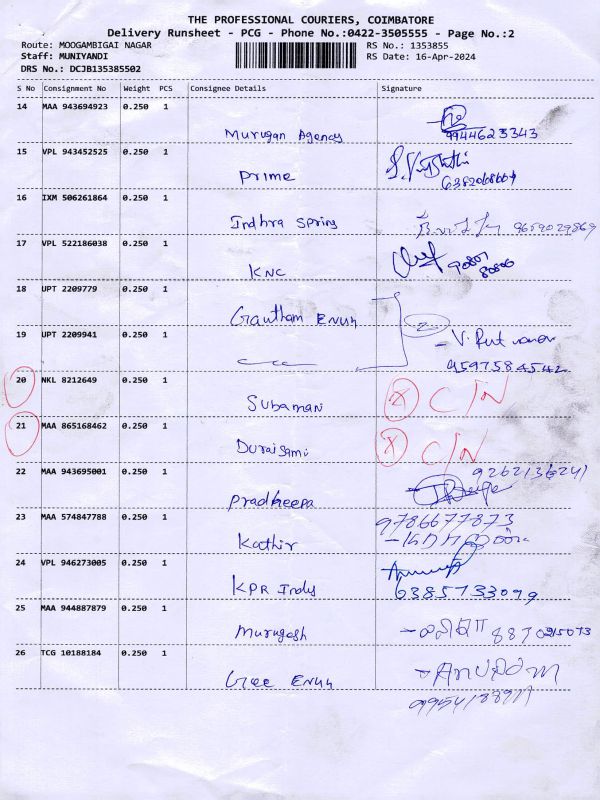 THE PROFESSIONAL COURIERS, COIMBATORE
Delivery Runsheet - PCG - Phone No.:0422-3505555 - Page No.:2
Route: MOOGAMBIGAI NAGAR RS No.: 1353855
Staff: MUNIYANDI RS Date: 16-Apr-2024
DRS No.: DCJB135385502
S No Consignment No Weight PCS Consignee Details Signature
14 MAA 943694923 0.250 1
Murugan Agency 9944623343
15 VPL 943452525 0.250 1
Prime
16 IXM 506261864 0.250 1
Indhra Spring 9659029869
17 VPL 522186038 0.250 1
KNC 90807
80806
18 UPT 2209779 0.250 1
Gautham 2
19 UPT 2209941 0.250 1
9597584542
20 NKL 8212649 0.250 1
Subaman X C/N
21 MAA 865168462 0.250 1
Duraisami X C/N
22 MAA 943695001 0.250 1 9262136241
Pradheepa
23 MAA 574847788 0.250 1 9786677873
Kathir
24 VPL 946273005 0.250 1
KPR Indus 6385733099
25 MAA 944887879 0.250 1
Murugesh
26 TCG 10188184 0.250 1
Gee